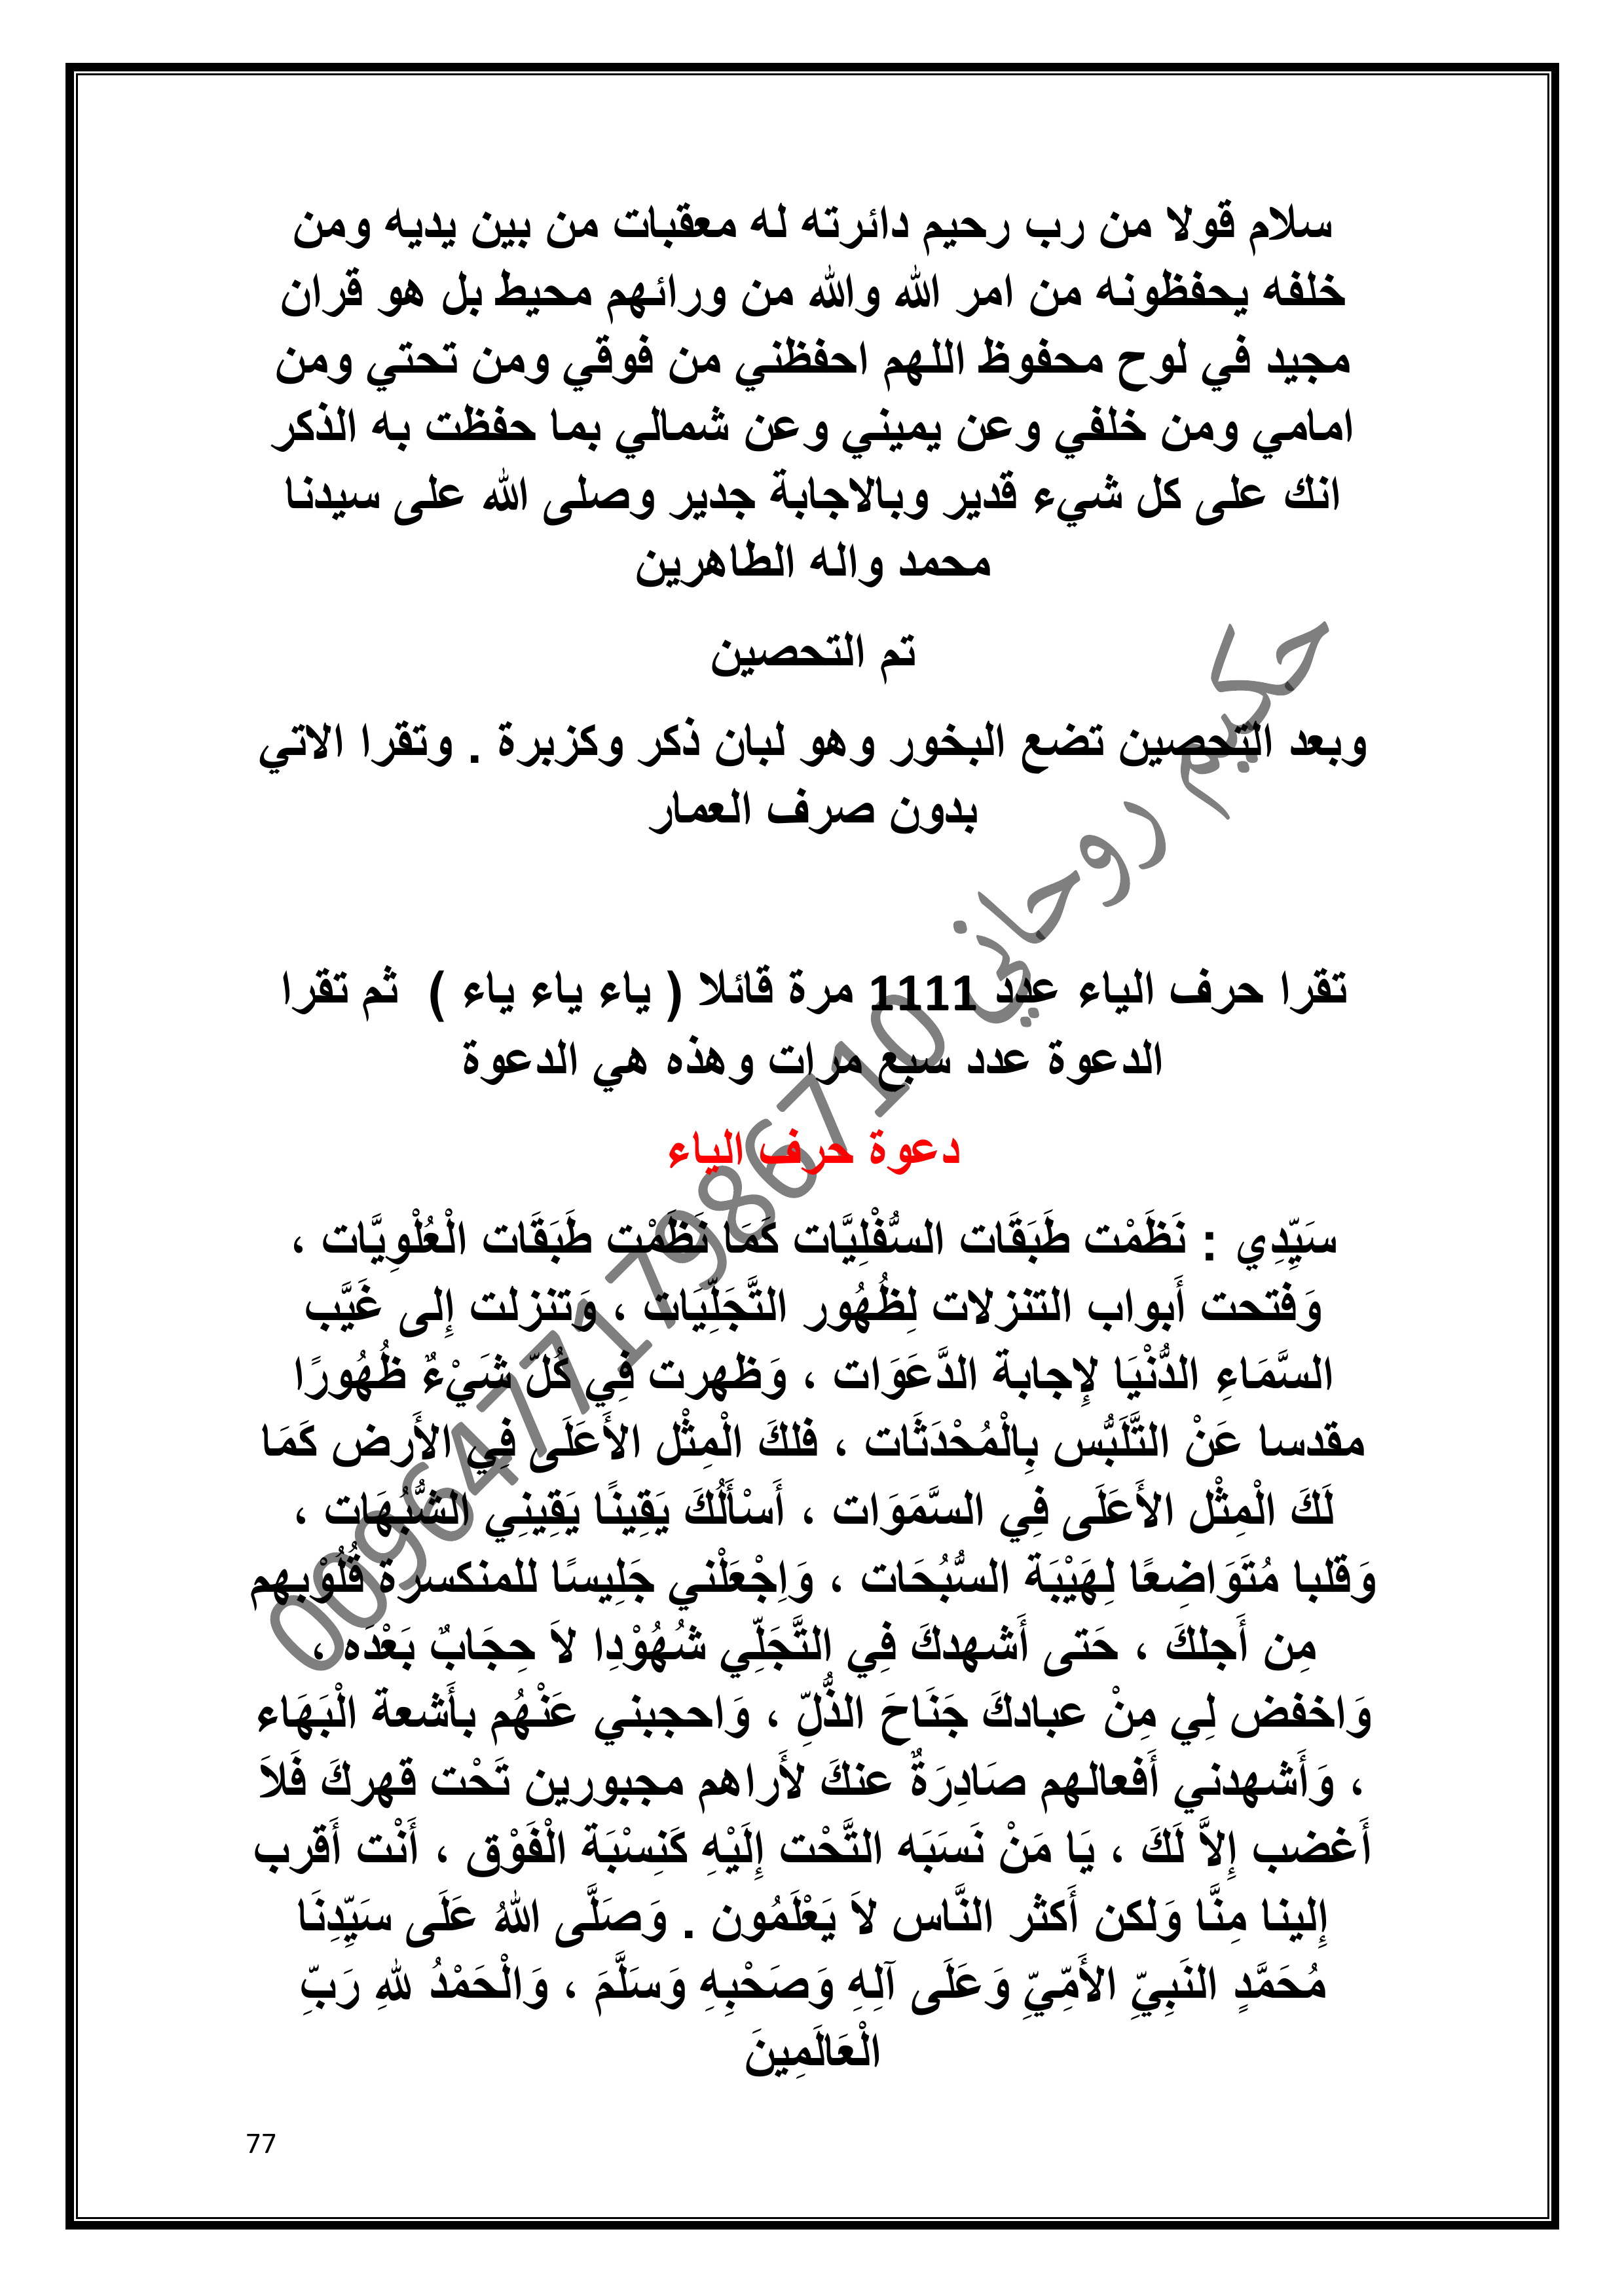 سلام قولا من رب رحيم دائرته له معقبات من بين يديه ومن
خلفه يحفظونه من امر الله والله من ورائهم محيط بل هو قران
مجيد في لوح محفوظ اللهم احفظني من فوقي ومن تحتي ومن
امامي ومن خلفي وعن يميني وعن شمالي بما حفظت به الذكر
انك على كل شيء قدير وبالاجابة جدير وصلى الله على سيدنا
محمد واله الطاهرين
تم التحصين
وبعد التحصين تضع البخور وهو لبان ذكر وكزبرة . وتقرا الاتي
بدون صرف العمار
تقرا حرف الياء عدد 1111 مرة قائلا ( ياء ياء ياء ) ثم تقرا
الدعوة عدد سبع مرات وهذه هي الدعوة
دعوة حرف الياء
سَيِّدِي : نَظَمْت طَبَقَات السُّفْلِيَّات كَمَا نَظَمْت طَبَقَات الْعُلْوِيَّات ،
وَفتحت أَبواب التنزلات لِظُهُور التَّجَلِّيَات ، وَتنزلت إِلى غَيَّب
السَّمَاءِ الدُّنْيَا لإِجابة الدَّعَوَات ، وَظهرت فِي كُلّ شَيْءٌ ظُهُورًا
مقدسا عَنْ التَّلَبُّس بِالْمُحْدَثَات ، فلكَ الْمِثْل الأَعَلَى فِي الأَرض كَمَا
لَكَ الْمِثْل الأَعَلَى فِي السَّمَوَات ، أَسْأَلُكَ يَقِينًا يَقِينِي الشُّبُهَات ،
وَقلبا مُتَوَاضِعًا لِهَيْبَة السُّبُحَات ، وَاِجْعَلْني جَلِيسًا للمنكسرة قُلُوْبهم
مِن أَجلكَ ، حَتى أَشهدكَ فِي التَّجَلِّي شُهُوْدِا لاَ حِجَابٌ بَعْدَه ،
وَاخفض لِي مِنْ عبادكَ جَنَاحَ الذُّلِّ ، وَاحجبني عَنْهُم بأَشعة الْبَهَاء
، وَأَشهدني أَفعالهم صَادِرَةٌ عنكَ لأَراهم مجبورين تَحْت قهركَ فَلاَ
أَغضب إِلاَّ لَكَ ، يَا مَنْ نَسَبَه التَّحْت إِلَيْهِ كَنِسْبَة الْفَوْق ، أَنْت أَقرب
إِلينا مِنَّا وَلكن أَكثر النَّاس لاَ يَعْلَمُون . وَصَلَّى اللهُ عَلَى سَيِّدِنَا
مُحَمَّدٍ النَبِيِّ الأُمِّيِّ وَعَلَى آلِهِ وَصَحْبِهِ وَسَلَّمَ ، وَالْحَمْدُ للهِ رَبِّ
الْعَالَمِينَ
حكيم روحاني 009647717986710
77